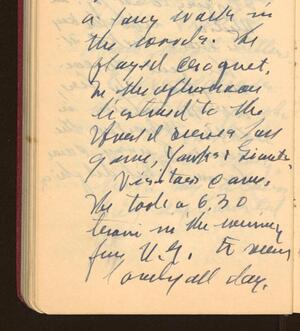 a long walk in
the woods. We
played croquet.
In the afternoon
listened to the
World series ball
game, Yanks & Giants.
Visitors came.
We took a 6.30
train in the evening
for N.Y. It was
lovely all day.